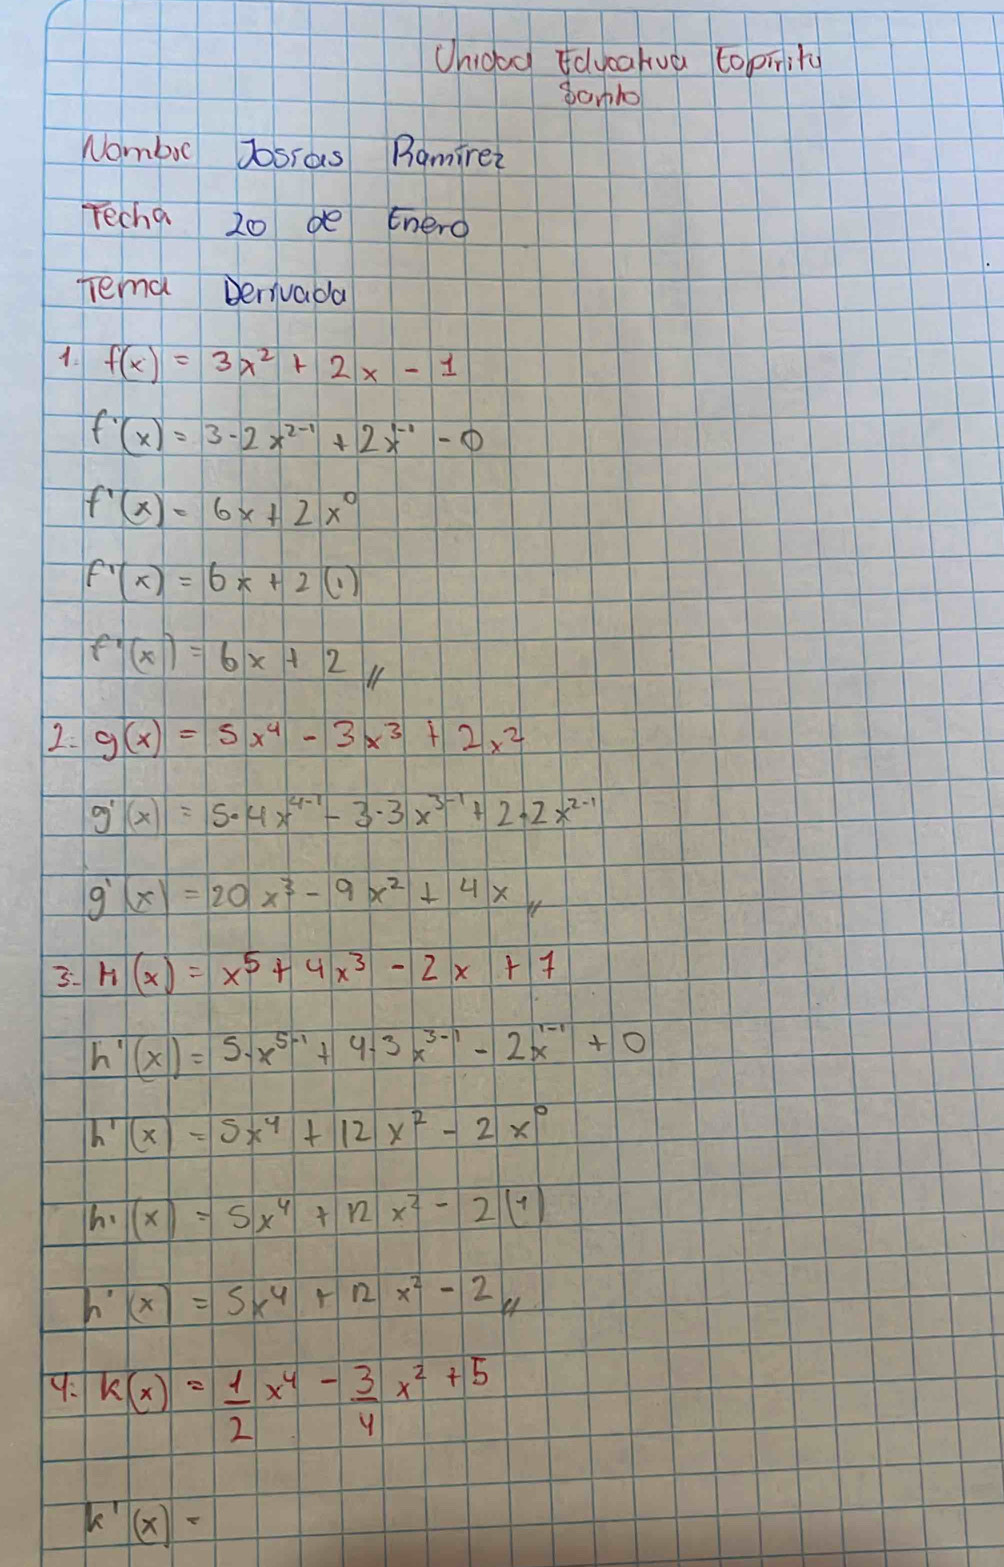 Unidad Educativa Espiritu
Santo
Nombre Josias Ramirez
Fecha 20 de Enero
Tema Derivada
1. f(x) = 3x² + 2x - 1
f'(x) = 3·2x²⁻¹ + 2x¹⁻¹ - 0
f'(x) = 6x + 2x⁰
f'(x) = 6x + 2(1)
f'(x) = 6x + 2 //
2. g(x) = 5x⁴ - 3x³ + 2x²
g'(x) = 5·4x⁴⁻¹ - 3·3x³⁻¹ + 2·2x²⁻¹
g'(x) = 20x³ - 9x² + 4x //
3. h(x) = x⁵ + 4x³ - 2x + 7
h'(x) = 5·x⁵⁻¹ + 4·3x³⁻¹ - 2x¹⁻¹ + 0
h'(x) = 5x⁴ + 12x² - 2x⁰
h'(x) = 5x⁴ + 12x² - 2(1)
h'(x) = 5x⁴ + 12x² - 2 //
4. k(x) = 1/2 x⁴ - 3/4 x² + 5
k'(x) =